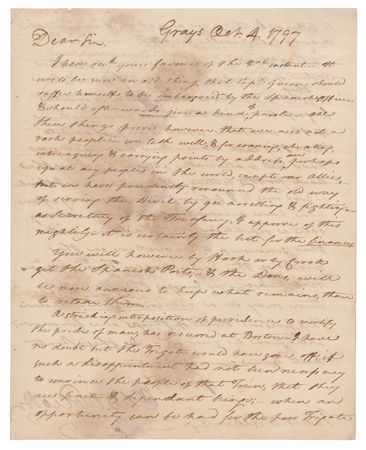 Grays Oct. 4. 1797
Dear Sir.
I have recd your favour of the 2nd instant - It
was to be sure an odd thing, that Capt should
suffer himself to be by the Spanish Officer
& should afterwards give a – all
these things prove however that we are not a
rash people – we talk well, & for cheating,
intriguing & carrying points by address, are perhaps
equal any people in the world, except our allies,
but we have prudently renounced the old way
of serving the Devil, by quarrelling & fighting –
as Secretary of the Treasury, I approve of this
mightily – it is certainly the best for the finances
You will however by Hook or by Crook
get the Spanish Posts, & the Dons, will
be more anxious to keep what remains, than
to retake them
A striking interposition of providence to mortify
the pride of man, has occurred at Boston – I have
no doubt but the Frigate would have gone off, if
such a disappointment had not been necessary
to convince the people of that Town, that they
are finite & dependant beings; – when an
opportunity can be had for the poor Frigate